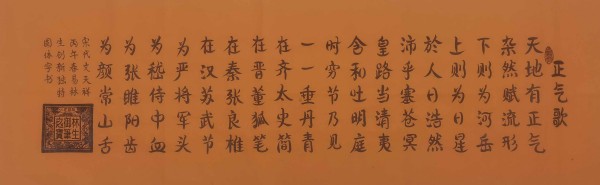 正气歌
天地有正气
杂然赋流形
下则为河岳
上则为日星
於人曰浩然
沛乎塞苍冥
皇路当清夷
含和吐明庭
时穷节乃见
一一垂丹青
在齐太史简
在晋董狐笔
在秦张良椎
在汉苏武节
为严将军头
为嵇侍中血
为张睢阳齿
为颜常山舌
宋代文天祥